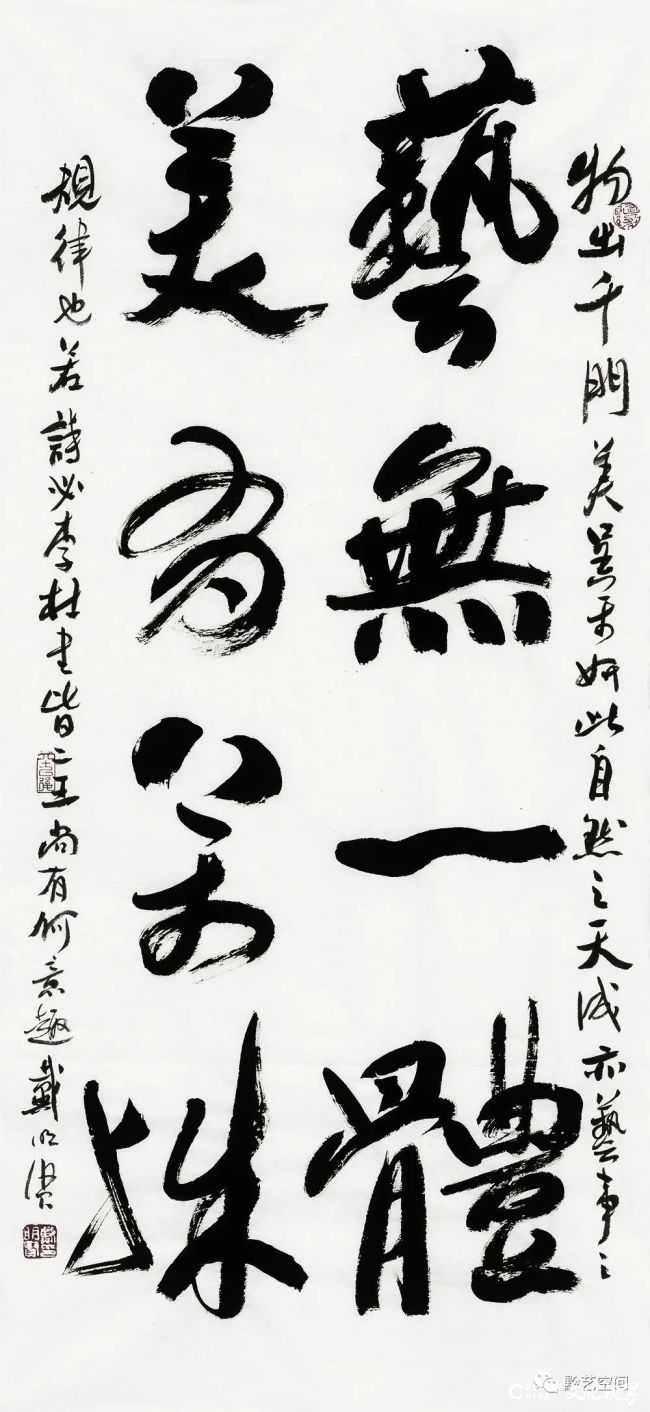 物出千門美呈萬妍此自然之天成亦藝事之
藝無一體
美有萬殊
規律也若詩必李杜書皆二王尚有何意趣戴明賢
黔艺空间